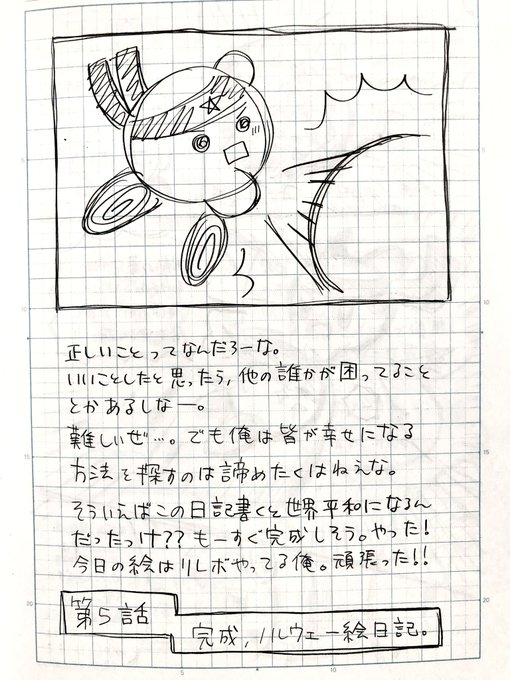 正しいことってなんだろーな。
いいことしたと思ったら,他の誰かが困ってること
とかあるしなー。
難しいぜ…。でも俺は皆が幸せになる
方法を探すのは諦めたくはねえな。
そういえばこの日記書くと世界平和になるん
だったっけ??もーすぐ完成しそう。やった!
今日の絵はリレボやってる俺。頑張った!!
第5話
完成,ハルウェー絵日記。